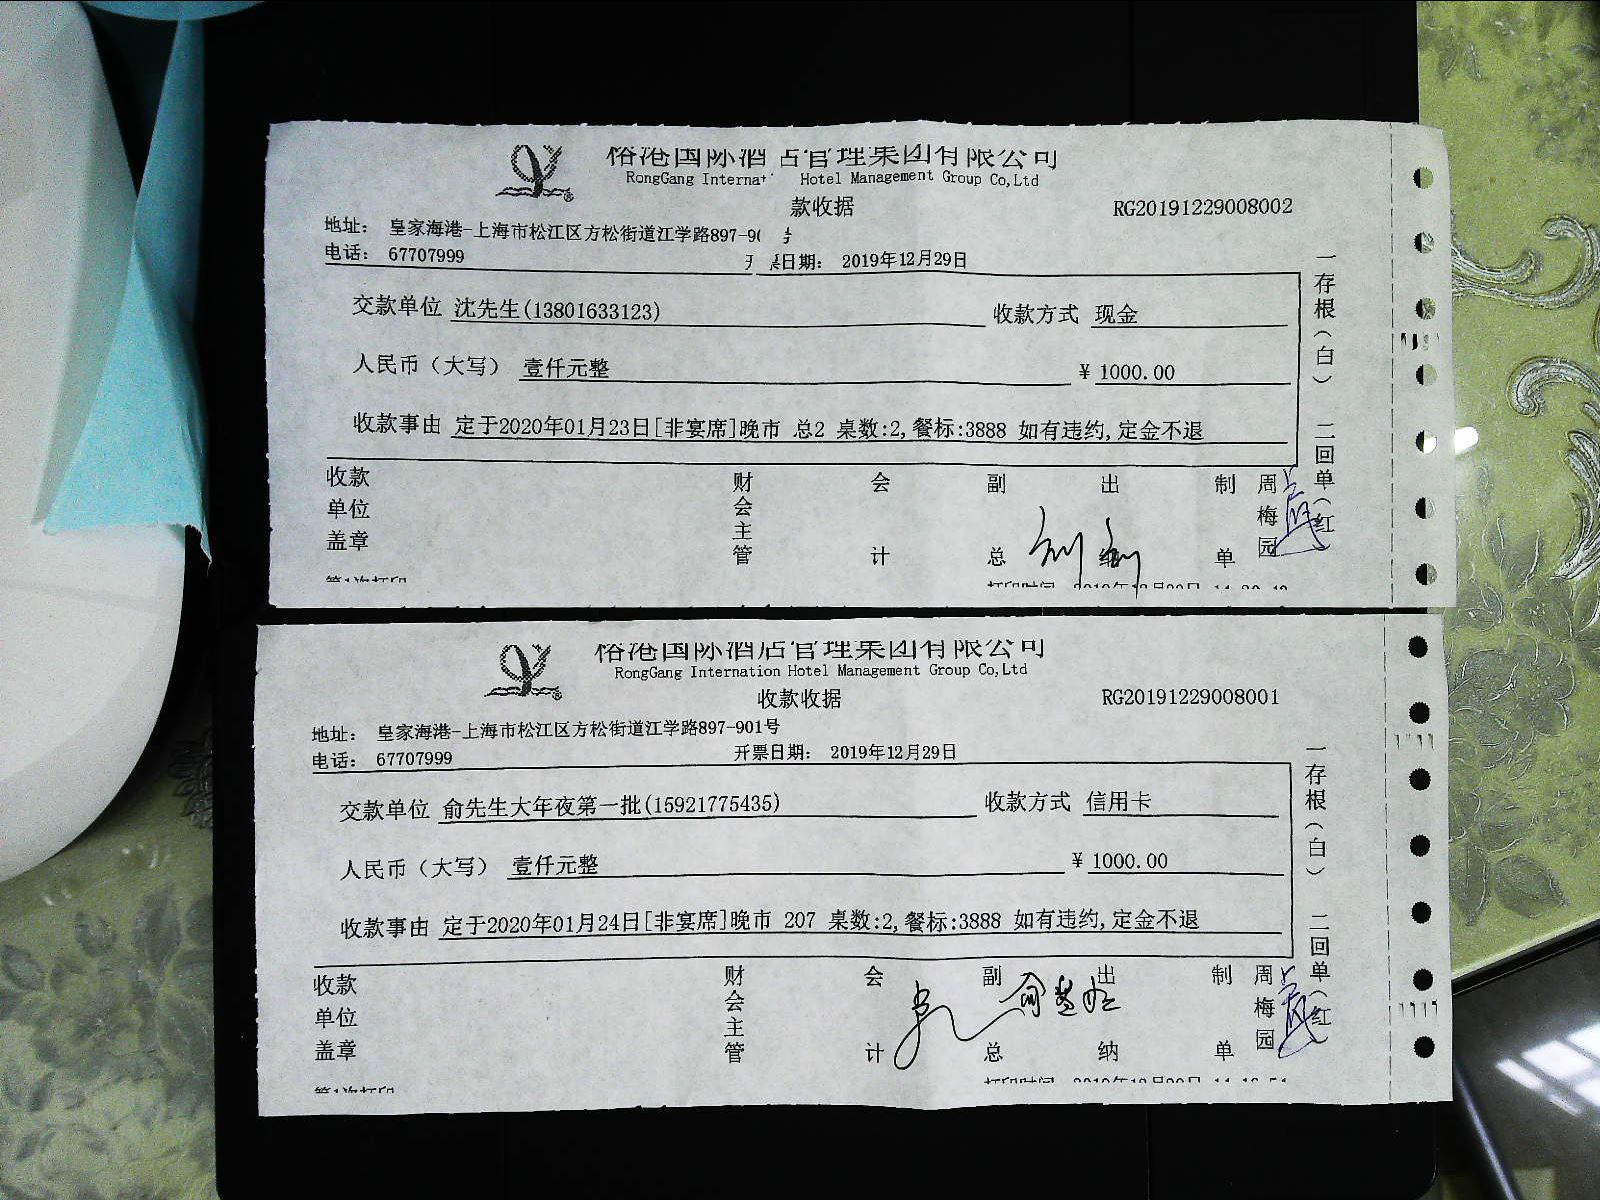 裕港国际酒店管理集团有限公司
RongGang Internat Hotel Management Group Co,Ltd
款收据
RG20191229008002
地址： 皇家海港-上海市松江区方松街道江学路897-90
电话： 67707999
日期： 2019年12月29日
交款单位 沈先生(13801633123) 收款方式 现金
人民币（大写） 壹仟元整 ¥ 1000.00
收款事由 定于2020年01月23日[非宴席]晚市 总2 桌数:2,餐标:3888 如有违约,定金不退
收款单位盖章 财会主管 会计 副总 出 制单 周梅园
一存根（白） 二回单（红）
第1次打印
打印时间
裕港国际酒店管理集团有限公司
RongGang International Hotel Management Group Co,Ltd
收款收据
RG20191229008001
地址： 皇家海港-上海市松江区方松街道江学路897-901号
电话： 67707999
开票日期： 2019年12月29日
交款单位 俞先生大年夜第一批(15921775435) 收款方式 信用卡
人民币（大写） 壹仟元整 ¥ 1000.00
收款事由 定于2020年01月24日[非宴席]晚市 207 桌数:2,餐标:3888 如有违约,定金不退
收款单位盖章 财会主管 会计 副总 出纳 制单 周梅园
一存根（白） 二回单（红）
第1次打印
打印时间